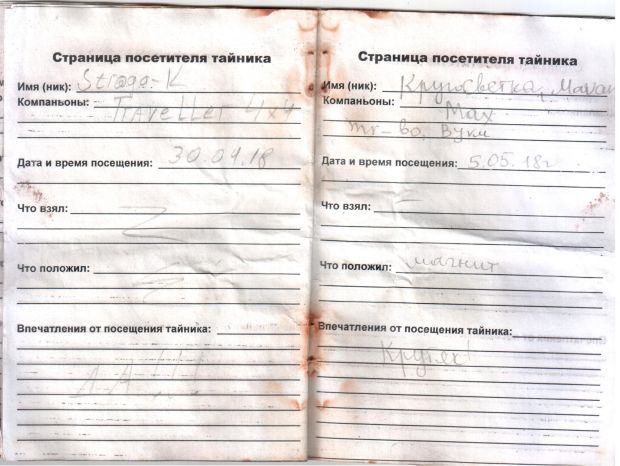 Страница посетителя тайника
Имя (ник): Str@go-K
Компаньоны: Traveller 4x4
Дата и время посещения: 30.04.18
Что взял:
Что положил:
Впечатления от посещения тайника:
Страница посетителя тайника
Имя (ник): Кругосветка,
Компаньоны: Max
mr-bo, Вуки
Дата и время посещения: 5.05.18г
Что взял: –
Что положил: магнит
Впечатления от посещения тайника:
Крутяк!